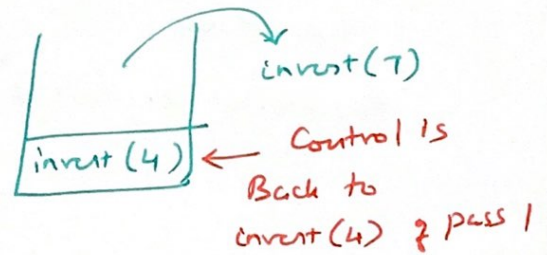 invert(7)
invert(4)
Control is
Back to
invert(4) & pass 1